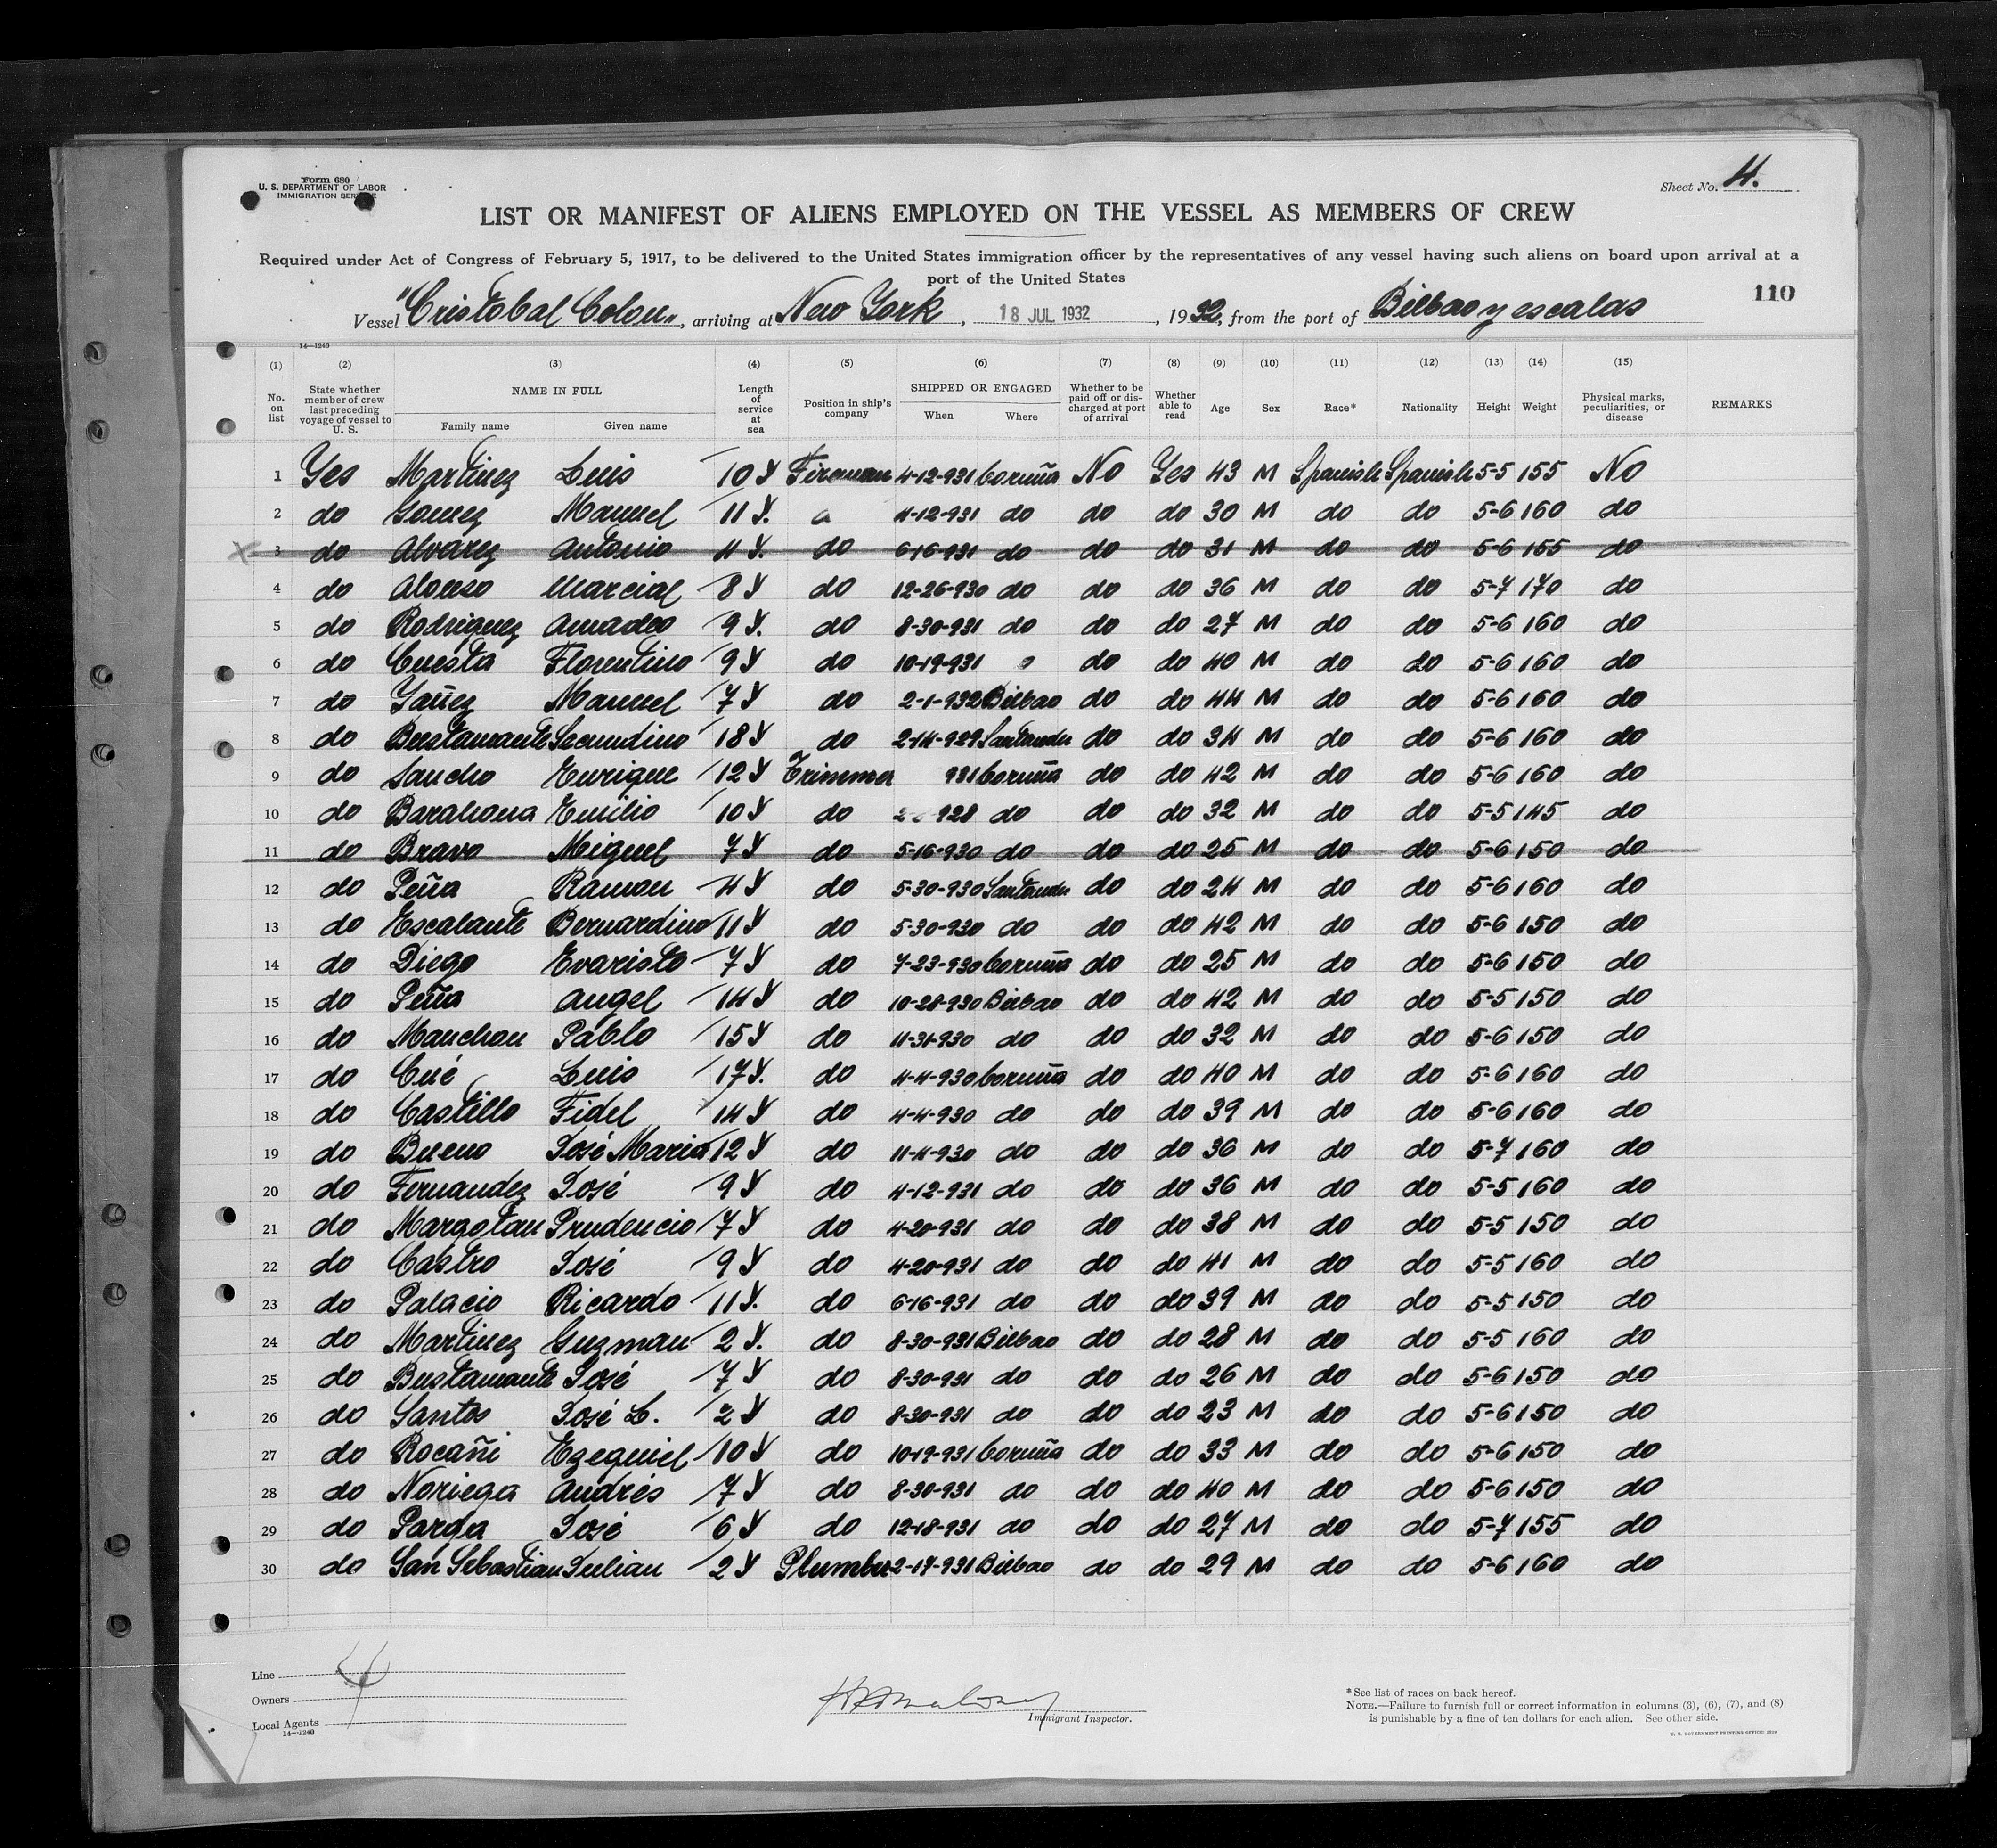 Form 680
U. S. DEPARTMENT OF LABOR
IMMIGRATION SERVICE
Sheet No. 4.
LIST OR MANIFEST OF ALIENS EMPLOYED ON THE VESSEL AS MEMBERS OF CREW
Required under Act of Congress of February 5, 1917, to be delivered to the United States immigration officer by the representatives of any vessel having such aliens on board upon arrival at a
port of the United States
110
Vessel "Cristobal Colon", arriving at New York, 18 JUL 1932, 1932, from the port of Bilbao y escalas
14—1240
(1) (2) (3) (4) (5) (6) (7) (8) (9) (10) (11) (12) (13) (14) (15)
No. on list State whether member of crew last preceding voyage of vessel to U. S. NAME IN FULL Family name Given name Length of service at sea Position in ship's company SHIPPED OR ENGAGED When Where Whether to be paid off or discharged at port of arrival Whether able to read Age Sex Race* Nationality Height Weight Physical marks, peculiarities, or disease REMARKS
1 Yes Martinez Luis 10 Y Fireman 4-12-931 Coruña No Yes 43 M Spanish Spanish 5-5 155 No
2 do Gomez Manuel 11 Y. 4-12-931 do do do 30 M do do 5-6 160 do
3 do Alvarez Antonio 4 Y. do 6-16-931 do do do 31 M do do 5-6 155 do
4 do Alonso Marcial 8 Y do 12-26-930 do do do 36 M do do 5-7 170 do
5 do Rodriguez Amadeo 9 Y. do 8-30-931 do do do 27 M do do 5-6 160 do
6 do Cuesta Florentino 9 Y do 10-19-931 do do 40 M do do 5-6 160 do
7 do Yañez Manuel 7 Y do 2-1-932 Bilbao do do 44 M do do 5-6 160 do
8 do Bustamante Secundino 18 Y do 2-14-929 Santander do do 34 M do do 5-6 160 do
9 do Sancho Enrique 12 Y Trimmer 931 Coruña do do 42 M do do 5-6 160 do
10 do Barahona Emilio 10 Y do 928 do do do 32 M do do 5-5 145 do
11 do Bravo Miguel 7 Y do 5-16-930 do do do 25 M do do 5-6 150 do
12 do Peña Ramon 4 Y do 5-30-930 Santander do do 24 M do do 5-6 160 do
13 do Escalante Bernardino 11 Y do 5-30-930 do do do 42 M do do 5-6 150 do
14 do Diego Evaristo 7 Y do 7-23-930 Coruña do do 25 M do do 5-6 150 do
15 do Peña Angel 14 Y do 10-28-930 Bilbao do do 42 M do do 5-5 150 do
16 do Manchon Pablo 15 Y do 11-31-930 do do do 32 M do do 5-6 150 do
17 do Cué Luis 17 Y. do 4-4-930 Coruña do do 40 M do do 5-6 160 do
18 do Castillo Fidel 14 Y do 4-4-930 do do do 39 M do do 5-6 160 do
19 do Bueno José Maria 12 Y do 11-4-930 do do do 36 M do do 5-7 160 do
20 do Fernandez José 9 Y do 4-12-931 do do do 36 M do do 5-5 160 do
21 do Margotan Prudencio 7 Y do 4-20-931 do do do 38 M do do 5-5 150 do
22 do Castro José 9 Y do 4-20-931 do do do 41 M do do 5-5 160 do
23 do Palacio Ricardo 11 Y. do 6-16-931 do do do 39 M do do 5-5 150 do
24 do Martinez Guzman 2 Y. do 8-30-931 Bilbao do do 28 M do do 5-5 160 do
25 do Bustamante José 7 Y do 8-30-931 do do do 26 M do do 5-6 150 do
26 do Santos José L. 2 Y do 8-30-931 do do do 23 M do do 5-6 150 do
27 do Rocañi Ezequiel 10 Y do 10-19-931 Coruña do do 33 M do do 5-6 150 do
28 do Noriega Andrés 7 Y do 8-30-931 do do do 40 M do do 5-6 150 do
29 do Parga José 6 Y do 12-18-931 do do do 27 M do do 5-7 155 do
30 do San Sebastian Julian 2 Y Plumber 2-17-931 Bilbao do do 29 M do do 5-6 160 do
Line
Owners
Local Agents
14—1240
Immigrant Inspector.
*See list of races on back hereof.
NOTE.—Failure to furnish full or correct information in columns (3), (6), (7), and (8)
is punishable by a fine of ten dollars for each alien. See other side.